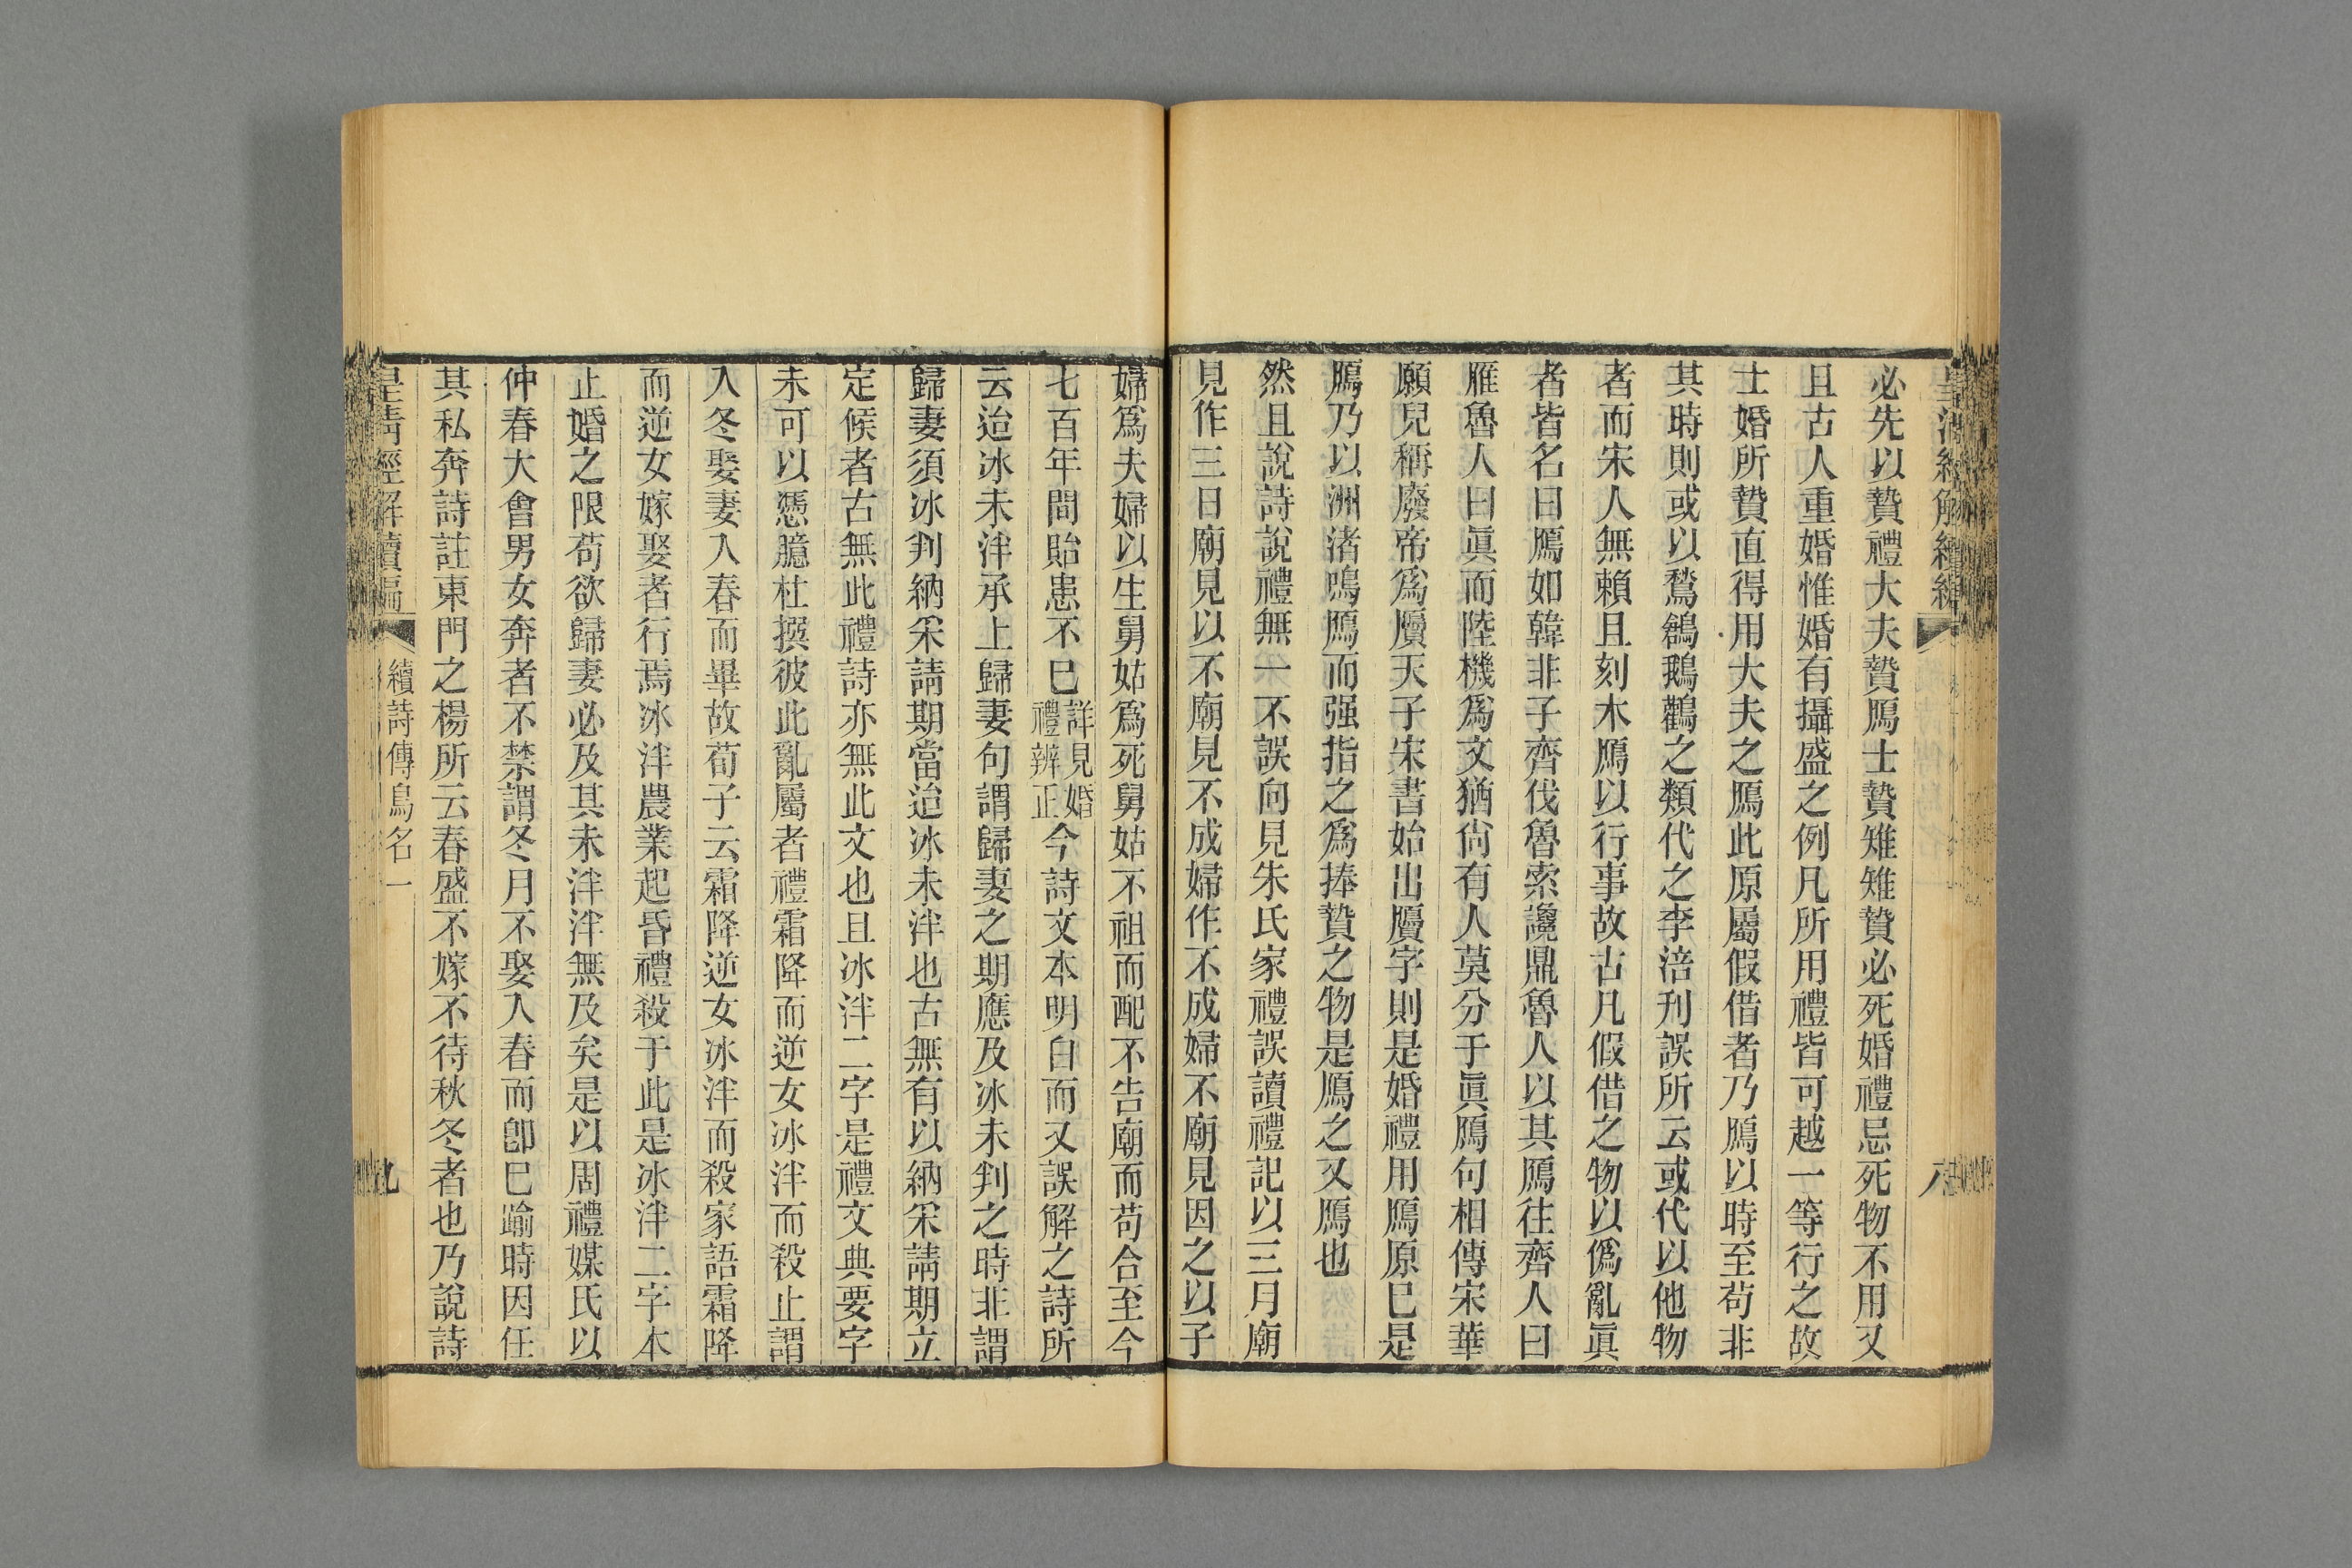 必先以贄禮大夫贄鴈士贄雉雉贄必死婚禮忌死物不用又
且古人重婚惟婚有攝盛之例凡所用禮皆可越一等行之故
士婚所贄直得用大夫之鴈此原屬假借者乃鴈以時至苟非
其時則或以鶩鶬鵝鸛之類代之李涪刊誤所云或代以他物
者而宋人無賴且刻木鴈以行事故古凡假借之物以僞亂眞
者皆名曰鴈如韓非子齊伐魯索讒鼎魯人以其鴈往齊人曰
雁魯人曰眞而陸機爲文猶尙有人莫分于眞鴈句相傳宋華
願兒稱廢帝爲贗天子宋書始出贗字則是婚禮用鴈原巳是
鴈乃以洲渚鳴鴈而强指之爲捧贄之物是鴈之又鴈也
然且說詩說禮無一不誤向見朱氏家禮誤讀禮記以三月廟
見作三日廟見以不廟見不成婦作不成婦不廟見因之以子
婦爲夫婦以生舅姑爲死舅姑不祖而配不告廟而苟合至今
七百年間貽患不巳詳見婚禮辨正今詩文本明白而又誤解之詩所
云迨冰未泮承上歸妻句謂歸妻之期應及冰未判之時非謂
歸妻須冰判納采請期當迨冰未泮也古無有以納采請期立
定候者古無此禮詩亦無此文也且冰泮二字是禮文典要字
未可以憑臆杜撰彼此亂屬者禮霜降而逆女冰泮而殺止謂
入冬娶妻入春而畢故荀子云霜降逆女冰泮而殺家語霜降
而逆女嫁娶者行焉冰泮農業起昏禮殺于此是冰泮二字本
止婚之限苟欲歸妻必及其未泮泮無及矣是以周禮媒氏以
仲春大會男女奔者不禁謂冬月不娶入春而卽巳踰時因任
其私奔詩註東門之楊所云春盛不嫁不待秋冬者也乃說詩
皇淸經解續編
續詩傳鳥名一
九